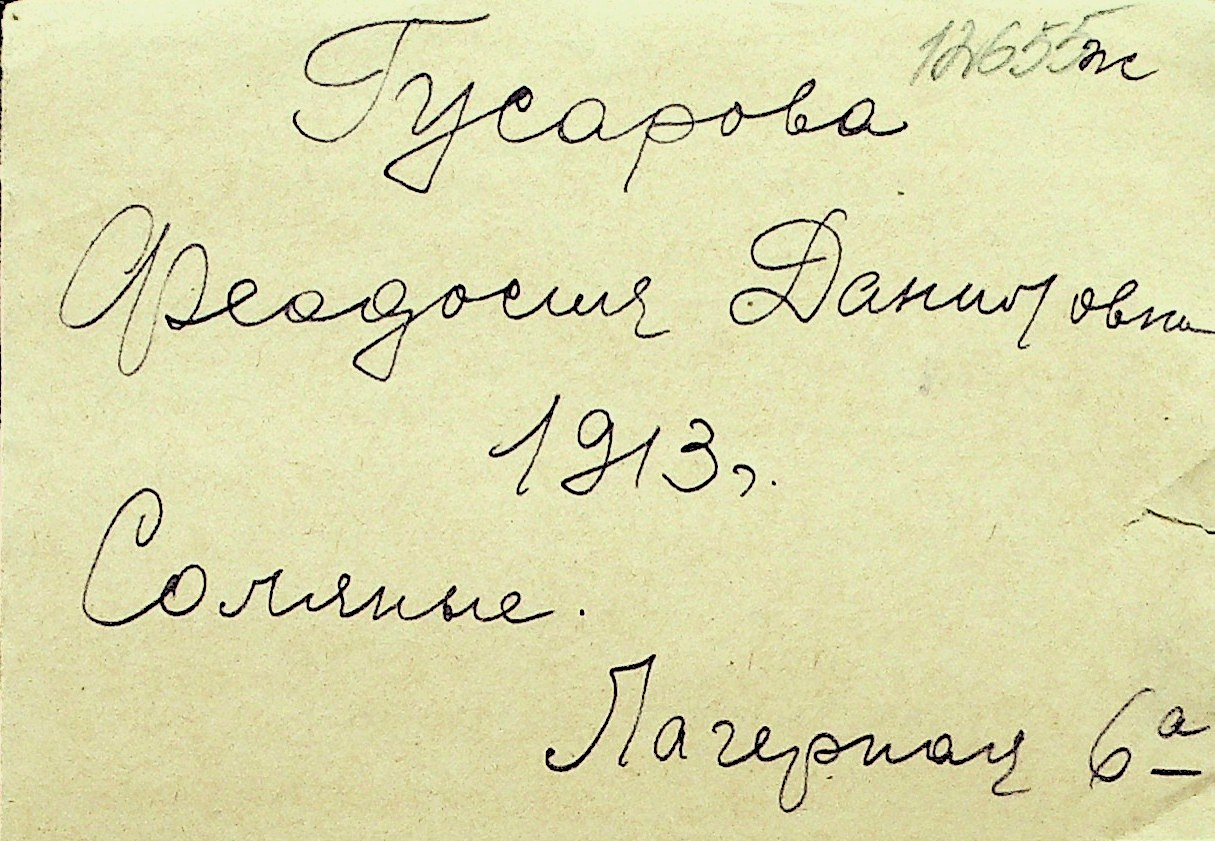 12655ж
Гусарова
Феодосия Даниловна
1913г.
Соляные.
Лагерная 6а